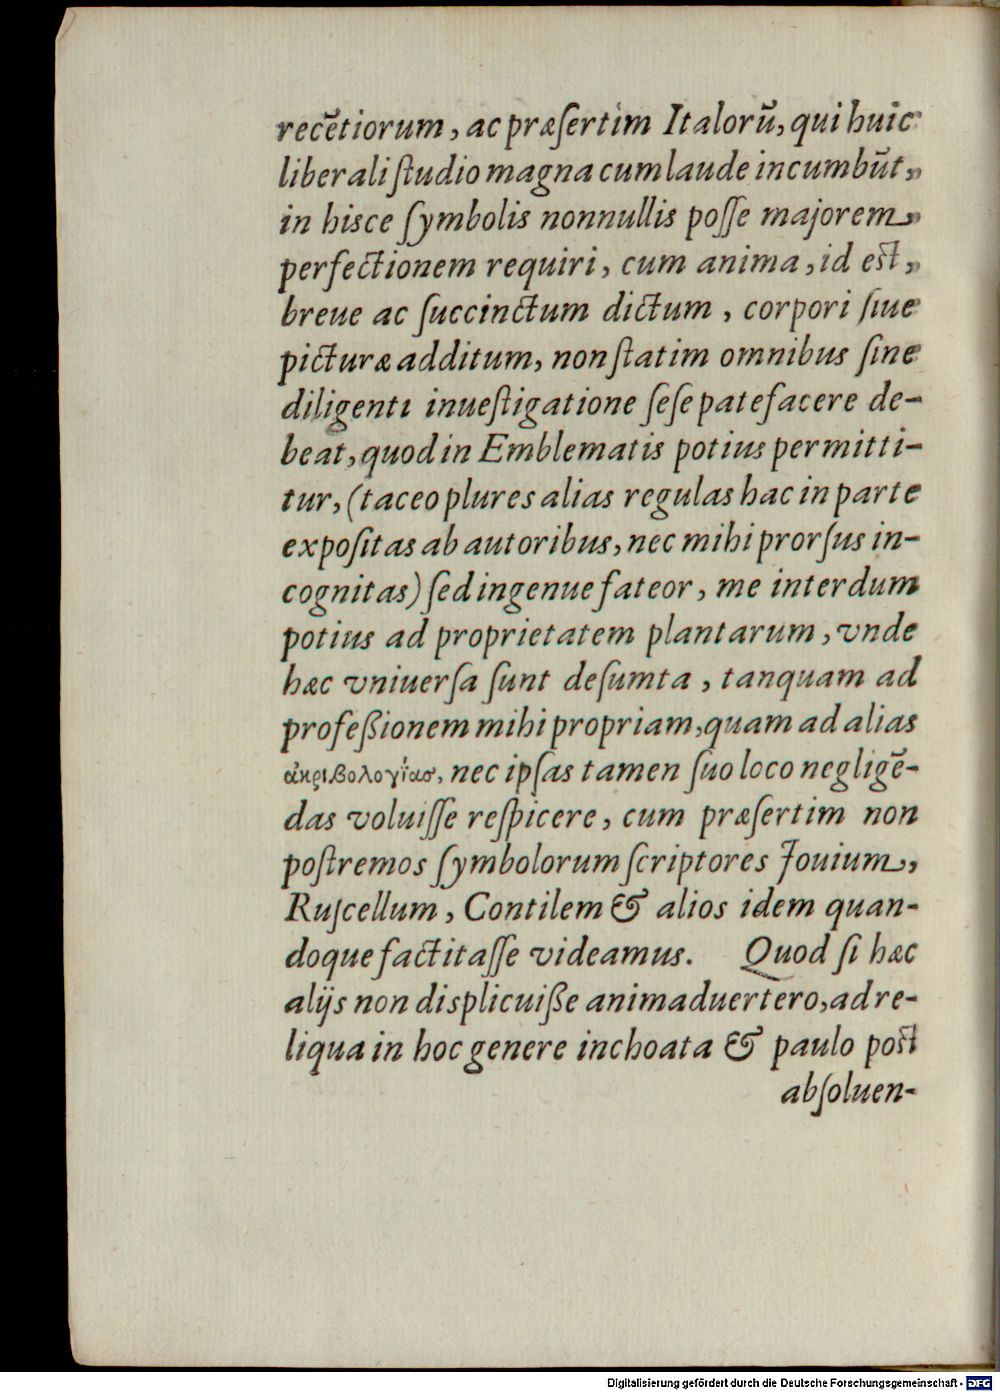 recẽtiorum, ac præſertim Italorũ, qui huic
liberali ſtudio magna cum laude incumbũt,
in hisce ſymbolis nonnullis poſſe majorem,
perfectionem requiri, cum anima, id eſt,
breue ac ſuccinctum dictum, corpori ſiue
picturæ additum, non ſtatim omnibus ſine
diligenti inueſtigatione ſeſe patefacere de-
beat, quod in Emblematis potius permitti-
tur, (taceo plures alias regulas hac in parte
expoſitas ab autoribus, nec mihi prorſus in-
cognitas) ſed ingenue fateor, me interdum
potius ad proprietatem plantarum, vnde
hæc vniuerſa ſunt deſumta, tanquam ad
profeßionem mihi propriam, quam ad alias
ἀκριβολογίας, nec ipſas tamen ſuo loco negligẽ-
das voluiſſe reſpicere, cum præſertim non
poſtremos ſymbolorum ſcriptores Jouium,
Ruſcellum, Contilem & alios idem quan-
doque factitaſſe videamus. Quod ſi hæc
alijs non displicuiße animaduertero, ad re-
liqua in hoc genere inchoata & paulo poſt
abſoluen-
Digitalisierung gefördert durch die Deutsche Forschungsgemeinschaft - DFG